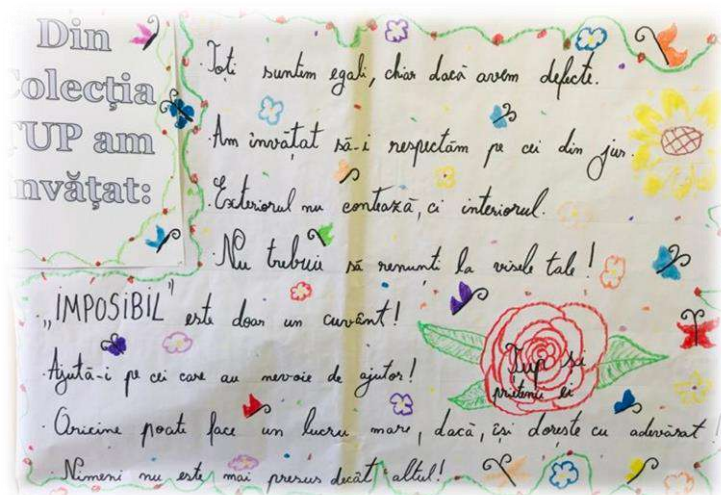 Din
Colecția
TUP am
învățat:
· Toți suntem egali, chiar dacă avem defecte.
· Am învățat să-i respectăm pe cei din jur.
· Exteriorul nu contează, ci interiorul.
· Nu trebuie să renunți la visele tale!
· „IMPOSIBIL" este doar un cuvânt!
· Ajută-i pe cei care au nevoie de ajutor!
· Oricine poate face un lucru mare, dacă, își dorește cu adevărat!
· Nimeni nu este mai presus decât altul!
Tup și
prietenii ei